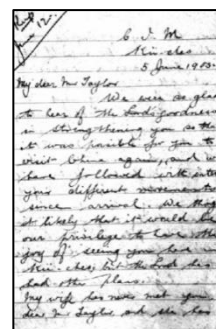 C. I. M.
Kin-chas
5 June 1905.
My dear Mr Taylor
We were so glad
to hear of the Lord's goodness
in strengthening you so that
it was possible for you to
visit China again, and we
have followed with
your different movements
since arrival. We
it likely that it would be
our privilege to have the
joy of seeing you here in
Kin-chas, but the Lord has
had other plans.
My wife has never met you
dear Mr Taylor and she has